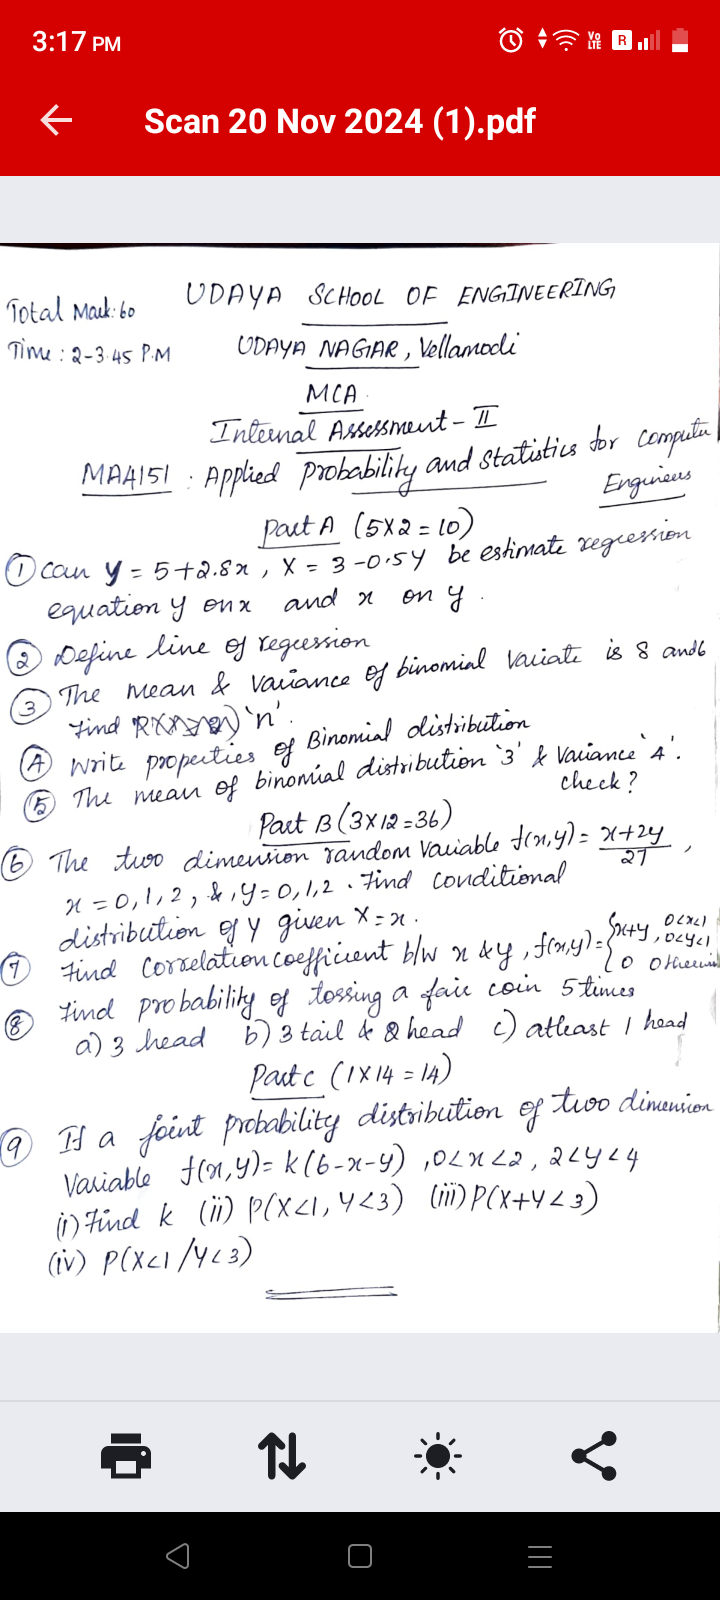 3:17 PM
Vo LTE R
Scan 20 Nov 2024 (1).pdf
Total Mark: 60
UDAYA SCHOOL OF ENGINEERING
Time : 2-3.45 P.M
UDAYA NAGAR, Vellamodi
MCA.
Internal Assessment - II
MA4151 : Applied Probability and Statistics for Computer
Engineers
Part A (5X2 = 10)
① Can y = 5+2.8x , X = 3-0.5Y be estimate regression
equation y on x and x on y .
② Define line of regression
③ The mean & variance of binomial variate is 8 and 6
Find 'n'.
④ Write properties of Binomial distribution
⑤ The mean of binomial distribution '3' & Variance '4'.
check?
Part B (3X12=36)
⑥ The two dimension random Variable f(x,y) = x+2y/27 ,
x = 0,1,2, & , y = 0,1,2 . Find conditional
distribution of y given X=x .
⑦ Find Correlation coefficient b/w x & y , f(x,y) = { x+y , 0<x<1 , 0<y<1
0 Otherwise
⑧ Find probability of tossing a fair coin 5 times
a) 3 head b) 3 tail & 2 head c) atleast 1 head
Part C (1X14 = 14)
⑨ If a joint probability distribution of two dimension
Variable f(x,y) = k(6-x-y) , 0<x<2, 2<y<4
(i) Find k (ii) P(X<1, Y<3) (iii) P(X+Y<3)
(iv) P(X<1 / Y<3)